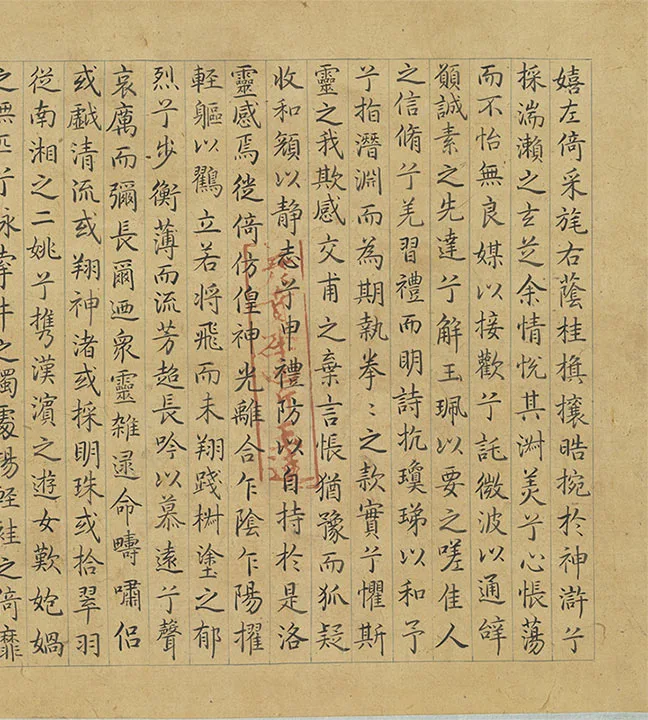 嬉左倚采旄右蔭桂旗攘晧捥於神滸兮
採湍瀨之玄芝余情悅其淑美兮心悵蕩
而不怡無良媒以接歡兮託微波以通辭
願誠素之先達兮解玉珮以要之嗟佳人
之信脩兮羌習禮而明詩抗瓊珶以和予
兮指潛淵而為期執拳〻之款實兮懼斯
靈之我欺感交甫之棄言悵猶豫而狐疑
收和顏以静志兮申禮防以自持於是洛
靈感焉徙倚仿偟神光離合乍陰乍陽擢
輕軀以鸖立若將飛而未翔踐椒塗之郁
烈兮步衡薄而流芳超長吟以慕遠兮聲
哀厲而彌長爾迺眾靈雜遝命疇嘯侶
或戲清流或翔神渚或採明珠或拾翠羽
從南湘之二姚兮携漢濱之遊女歎妑媧
之無匹兮詠牽牛之獨處揚輕袿之倚靡